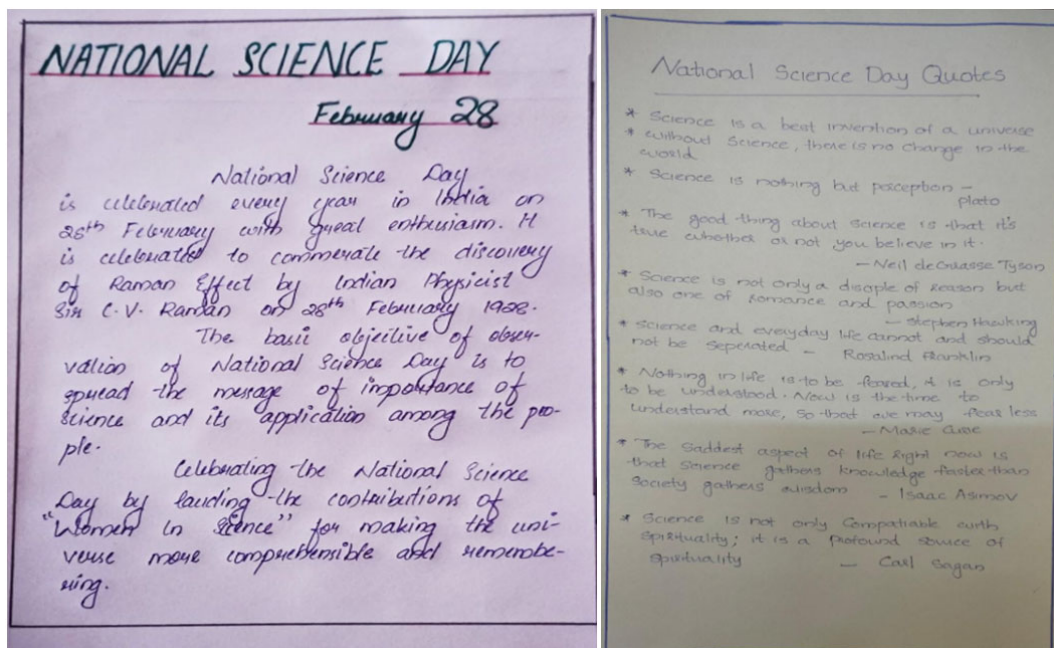 NATIONAL SCIENCE DAY
February 28
National Science Day
is celebrated every year in India on
28th February with great enthusiasm. It
is celebrated to commerate the discovery
of Raman Effect by Indian Physicist
Sir C.V. Raman on 28th February 1928.
The basic objective of obser-
vation of National Science Day is to
spread the message of importance of
science and its application among the peo-
ple.
Celebrating the National Science
Day by lauding the contributions of
"Women in Science" for making the uni-
verse more comprehensible and remembe-
ring.
National Science Day Quotes
* Science is a best invention of a universe
* without Science, there is no change in the
world
* Science is nothing but perception –
plato
* The good thing about science is that it's
true whether or not you believe in it.
– Neil deGrasse Tyson
* Science is not only a disciple of reason but
also one of romance and passion
– Stephen Hawking
* science and everyday life cannot and should
not be seperated – Rosalind franklin
* Nothing in life is to be feared, it is only
to be understood. Now is the time to
understand more, so that we may fear less
– Marie Curie
* The Saddest aspect of life Right now is
that Science gathers knowledge faster than
Society gathers wisdom – Isaac Asimov
* Science is not only Compatiable with
Spirituality; it is a profound source of
spirituality – Carl Sagan